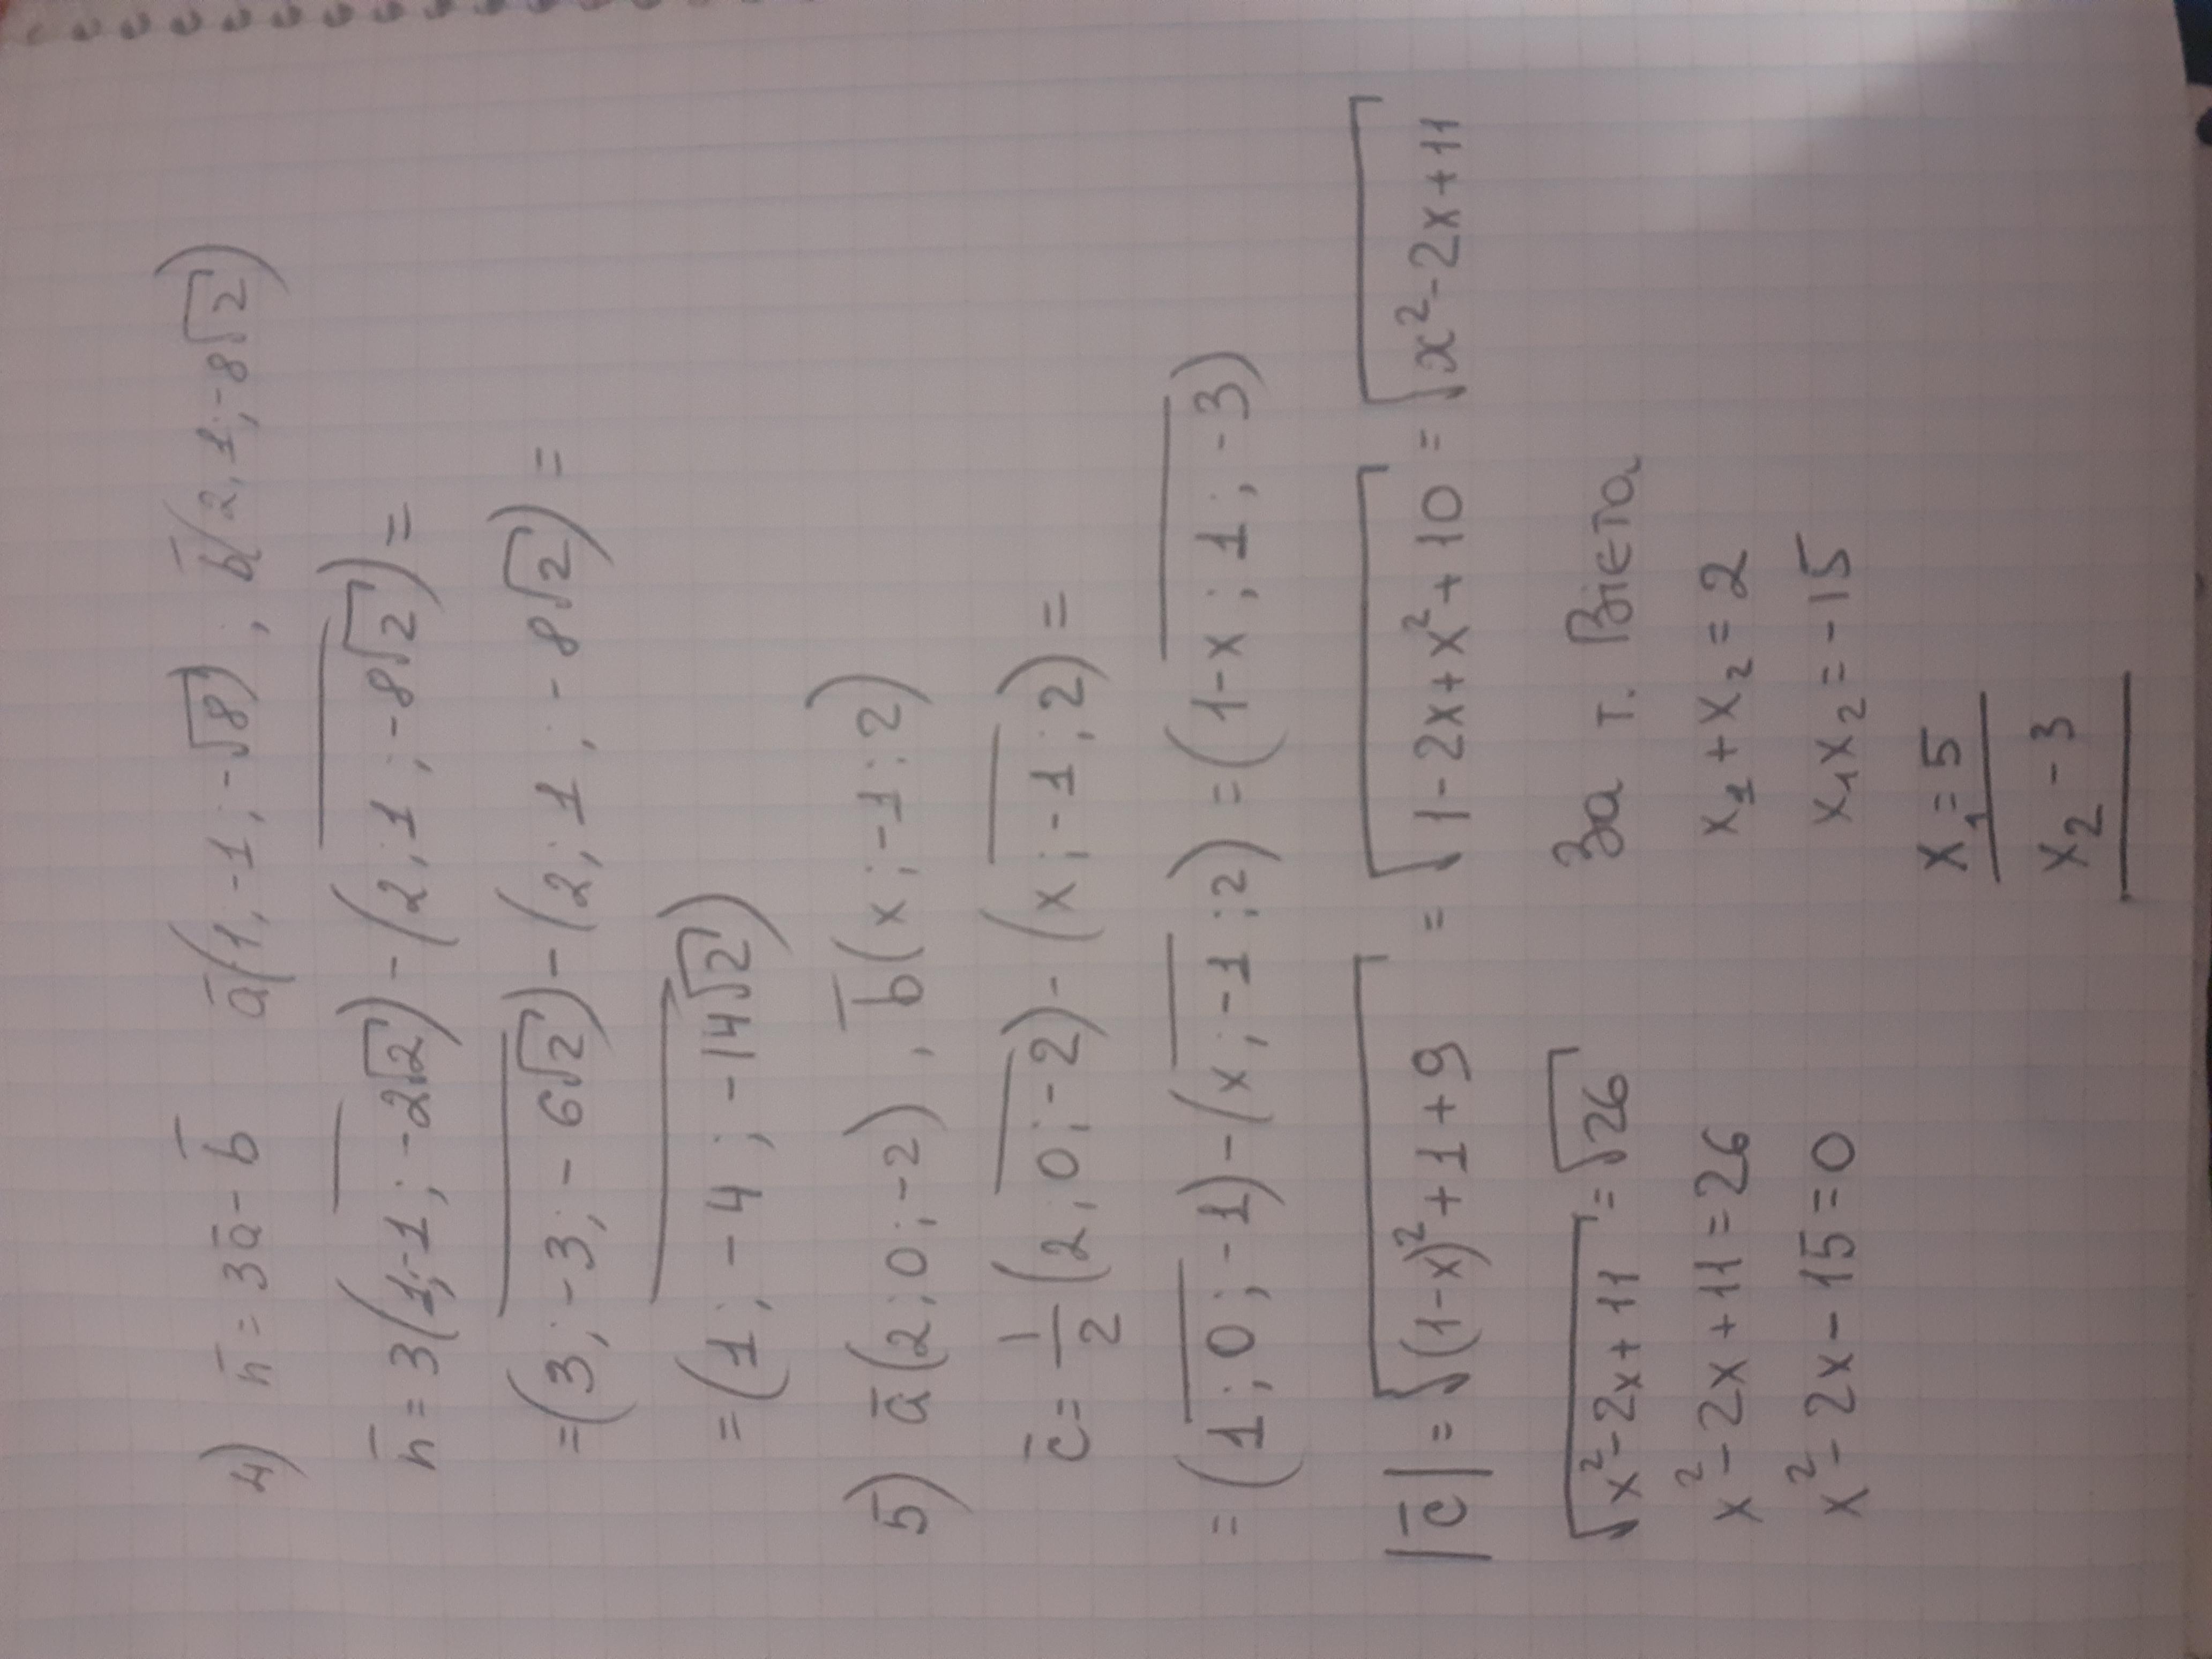 4) n̅ = 3a̅ - b̅ a̅(1; -1; -√8), b̅(2; 1; -8√2)
n̅ = 3(1; -1; -2√2) - (2; 1; -8√2) =
= (3; -3; -6√2) - (2; 1; -8√2) =
= (1; -4; -14√2)
5) a̅(2; 0; -2), b̅(x; -1; 2)
c̅ = 1/2 (2; 0; -2) - (x; -1; 2) =
= (1; 0; -1) - (x; -1; 2) = (1-x; 1; -3)
|c̅| = √((1-x)² + 1 + 9) = √(1 - 2x + x² + 10) = √(x² - 2x + 11)
√(x² - 2x + 11) = √26 За т. Вієта
x² - 2x + 11 = 26 x₁ + x₂ = 2
x² - 2x - 15 = 0 x₁x₂ = -15
x₁ = 5
x₂ - 3